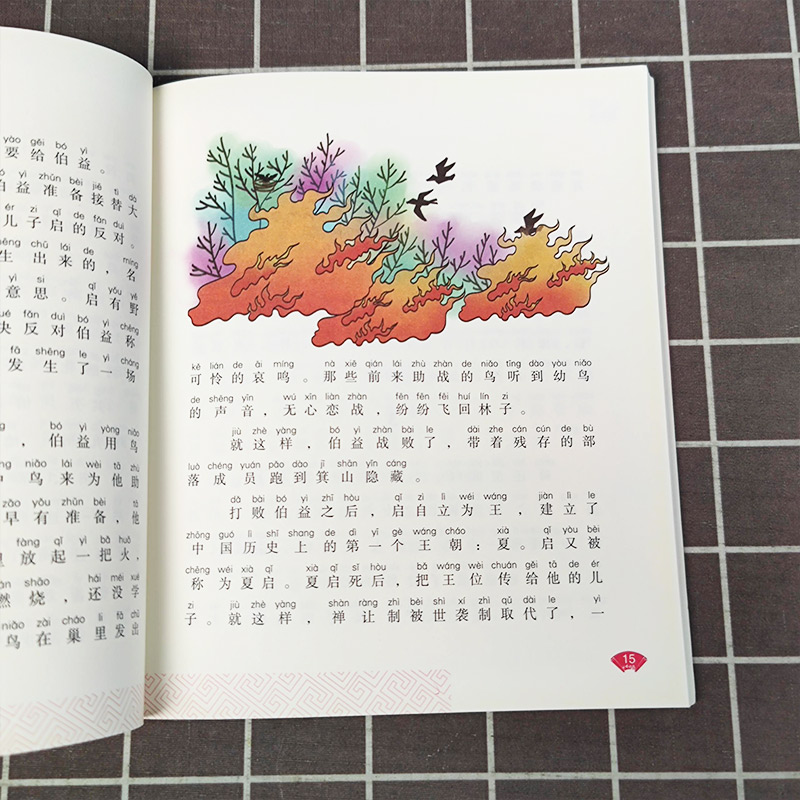 yào gěi bó yì
要给伯益。
yì zhǔn bèi jiē tì dà
伯益准备接替大
ér zi qǐ de fǎn duì
儿子启的反对。
shēng chū lái de míng
生出来的，名
yì si qǐ yǒu yě
意思。启有野
jué fǎn duì bó yì chēng
决反对伯益称
fā shēng le yì chǎng
发生了一场
bó yì yòng niǎo
，伯益用鸟
niǎo lái wèi tā zhù
鸟来为他助
zǎo yǒu zhǔn bèi tā
早有准备，他
fàng qǐ yì bǎ huǒ
里放起一把火，
rán shāo hái méi xué
燃烧，还没学
niǎo zài cháo li fā chū
鸟在巢里发出
kě lián de āi míng nà xiē qián lái zhù zhàn de niǎo tīng dào yòu niǎo
可怜的哀鸣。那些前来助战的鸟听到幼鸟
de shēng yīn wú xīn liàn zhàn fēn fēn fēi huí lín zi
的声音，无心恋战，纷纷飞回林子。
jiù zhè yàng bó yì zhàn bài le dài zhe cán cún de bù
就这样，伯益战败了，带着残存的部
luò chéng yuán pǎo dào jī shān yǐn cáng
落成员跑到箕山隐藏。
dǎ bài bó yì zhī hòu qǐ zì lì wéi wáng jiàn lì le
打败伯益之后，启自立为王，建立了
zhōng guó lì shǐ shang de dì yī gè wáng cháo xià qǐ yòu bèi
中国历史上的第一个王朝：夏。启又被
chēng wéi xià qǐ xià qǐ sǐ hòu bǎ wáng wèi chuán gěi tā de ér
称为夏启。夏启死后，把王位传给他的儿
zi jiù zhè yàng shàn ràng zhì bèi shì xí zhì qǔ dài le yì
子。就这样，禅让制被世袭制取代了，一
15